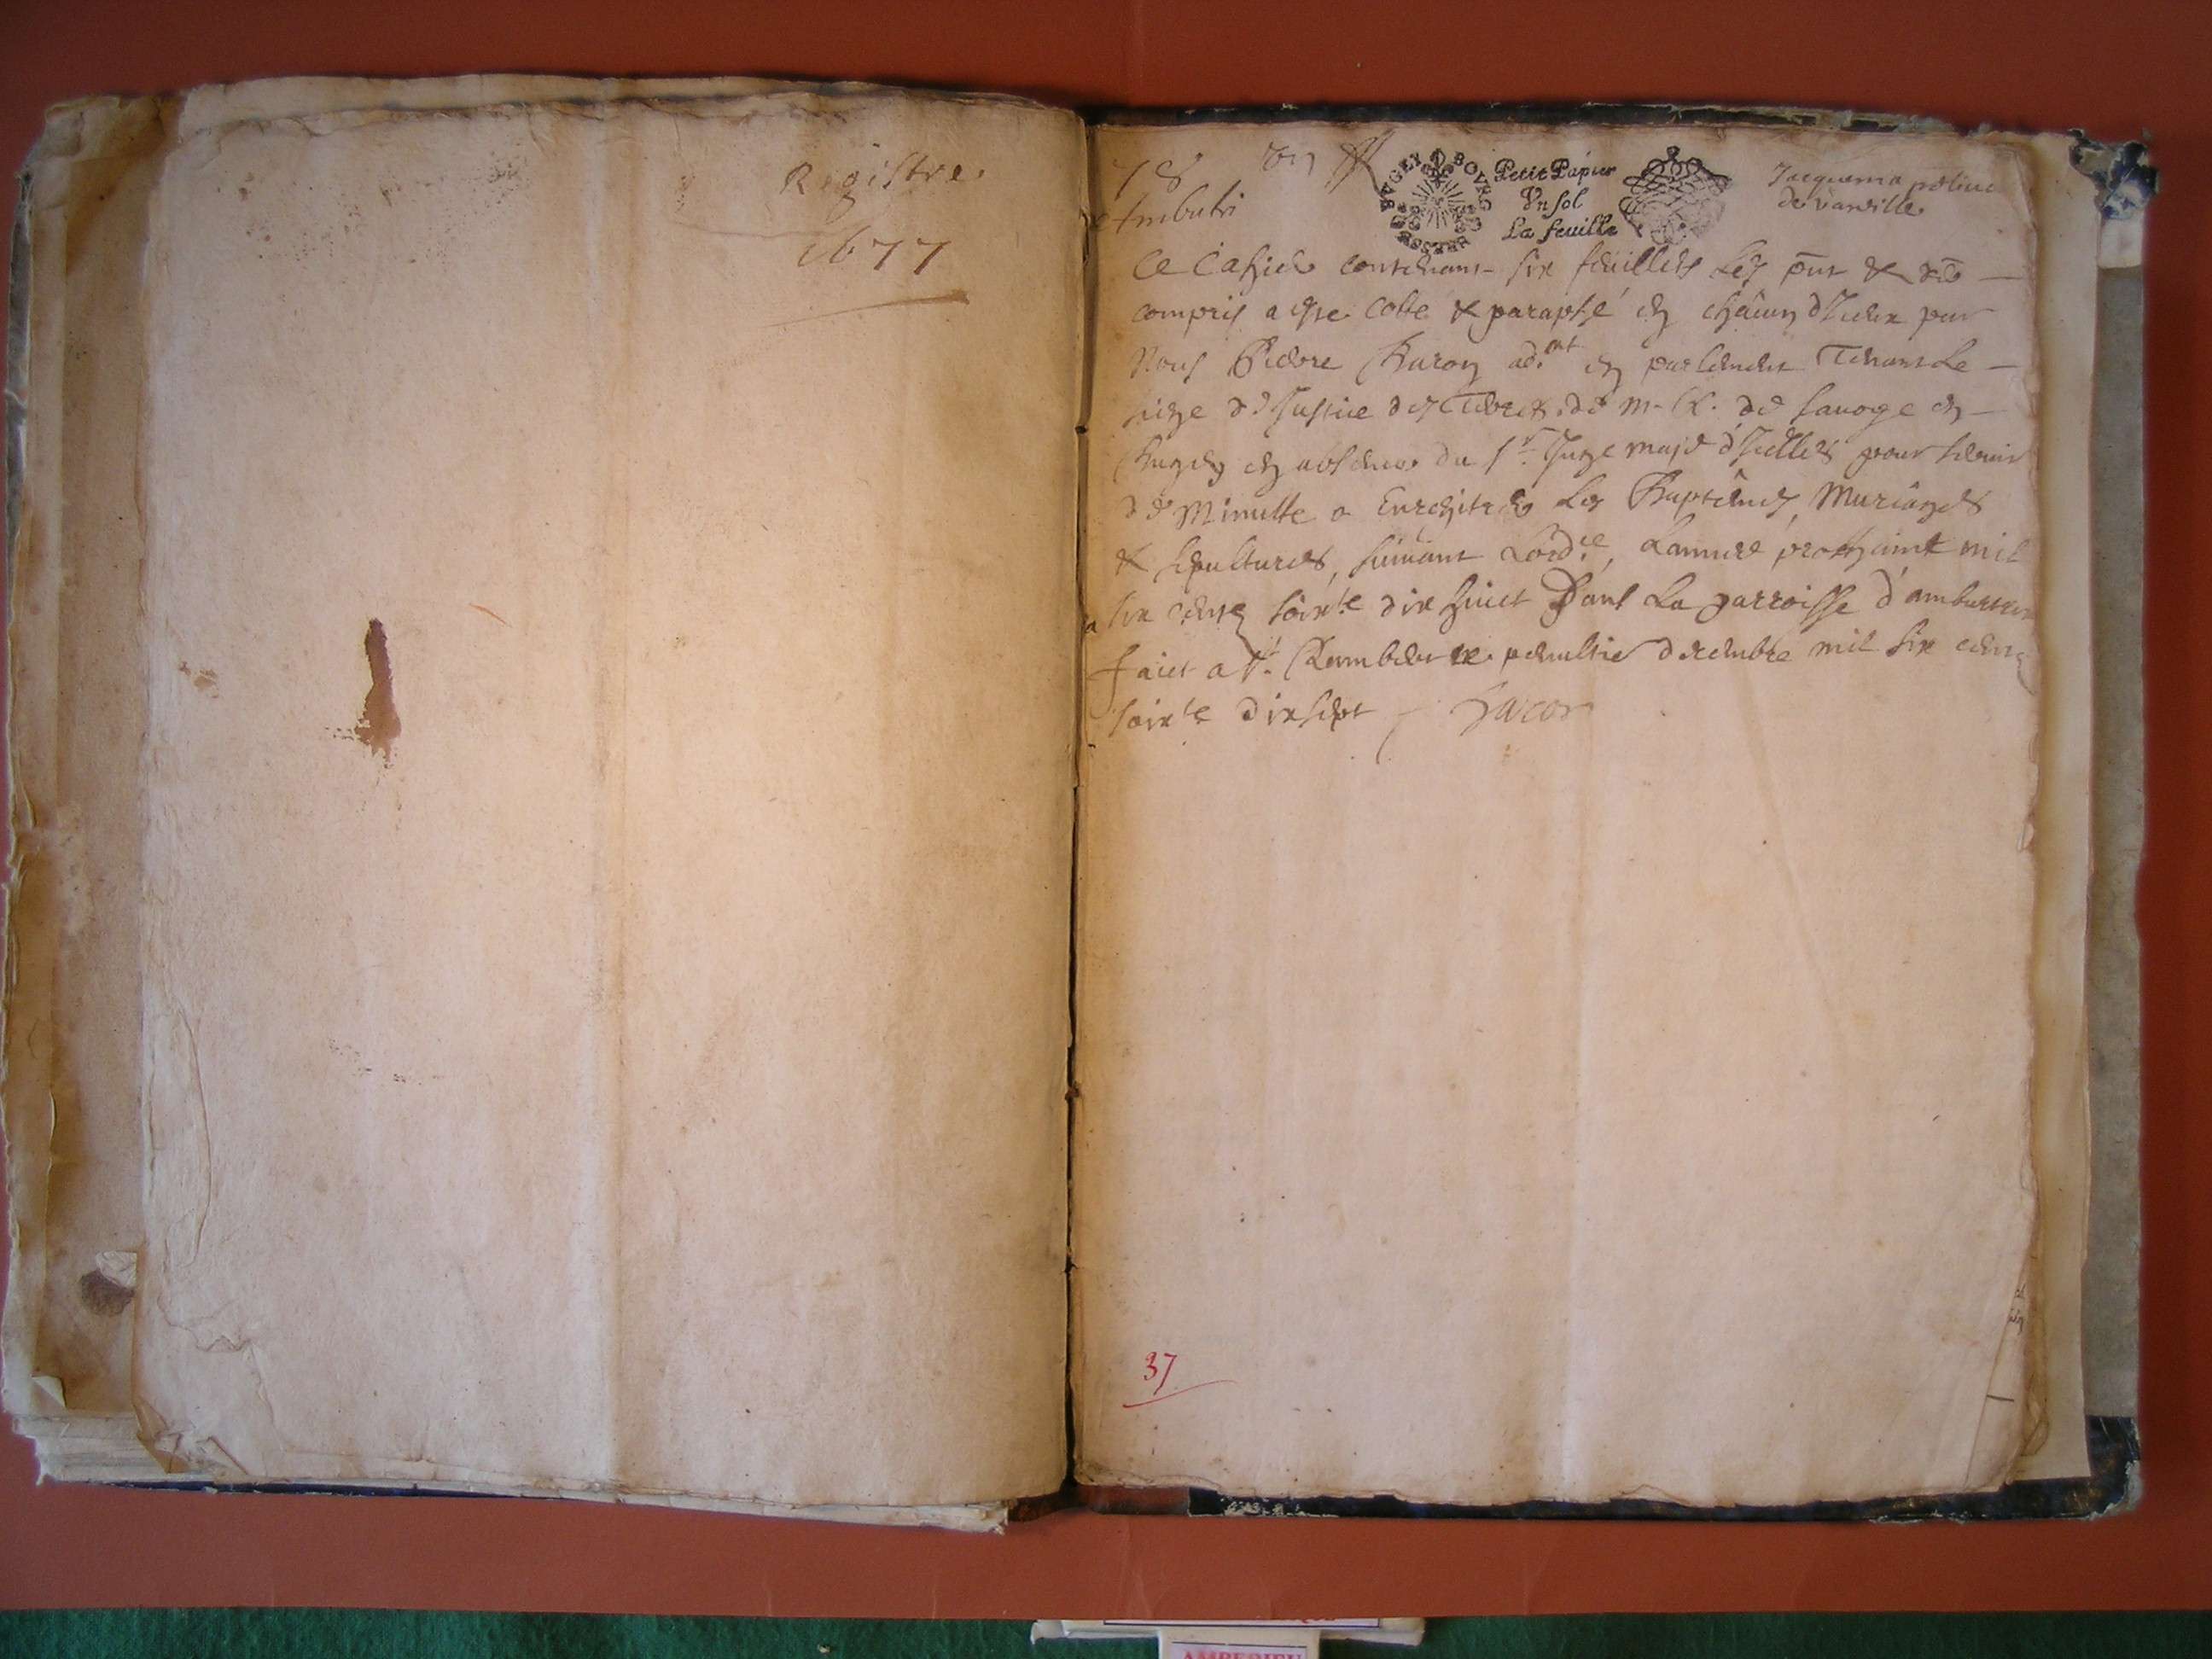 Registre.
1677
78
Petit Papier
Un sol
La feuille
BVGEY BOVRG
Jacquema
de varville
Ce Cahier contenant six feuillets
compris a este cotte & paraphé en chacun d'iceux par
Nous Baron adt en parlement Tenant Le
siege de Justice des Terres de m. R. de savoye en
bugey en absence du Sr Juge maje d'icelles pour servir
de Minutte a Enregitrer Les Baptêmes, Mariages
& sepultures, suivant Lordce, Lannee prochaine mil
six cents soixte dix huict Dans La parroisse d'ambutrix
faict a St Rambert le penultie decembre mil six cents
soixte dix sept Baron
37